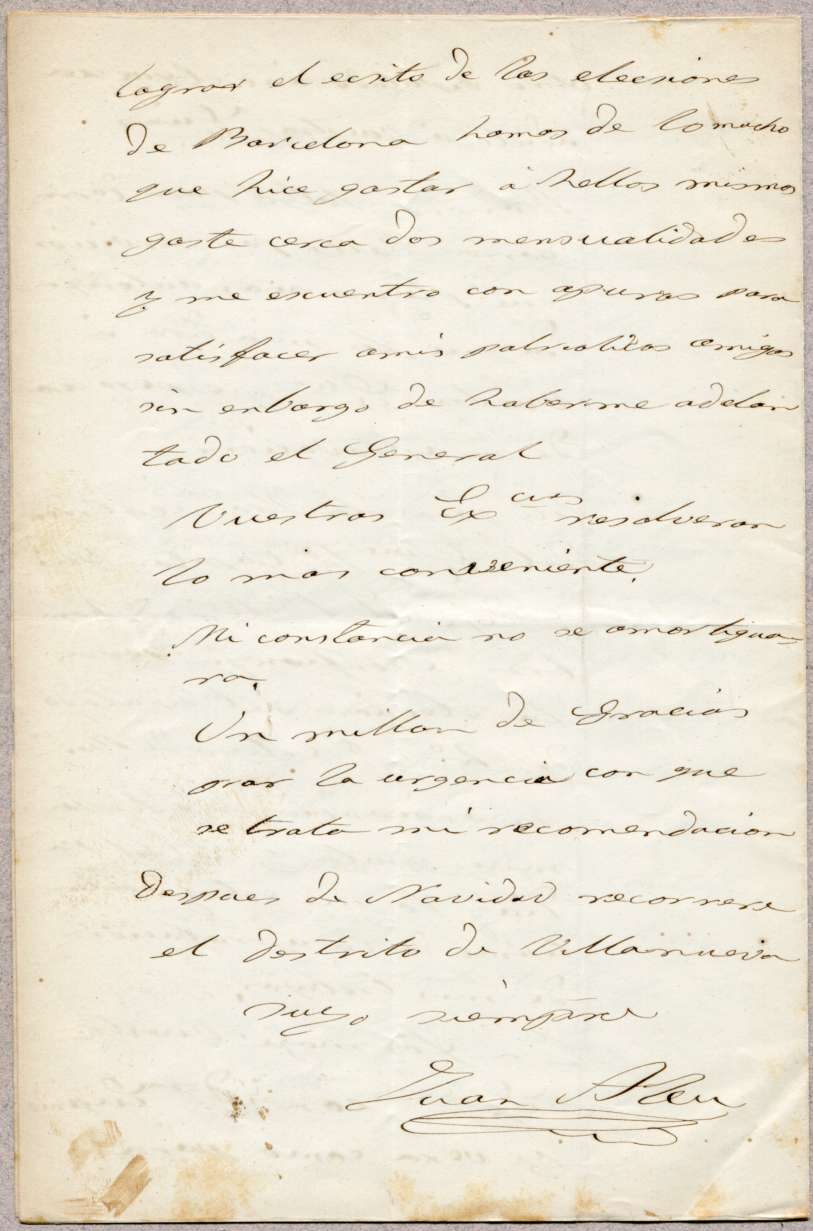 lograr el ecsito de las elecsiones
de Barcelona hamas de lo mucho
que hice gastar á hellos mismos
gaste cerca dos mensualidades
y me escuentro con apuros para
satisfacer amis patrioticos amigos
sin enbargo de haberme adelan
tado el General
Vuestras Ex cias resolveran
lo mas conveniente.
Mi constancia no se amortigua=
ra.
Un millon de Gracias
por la urgencia con que
se trata mi recomendacion
Despues de Navidad recorrere
el destrito de Villanueva
suyo siempre
Juan Aleu